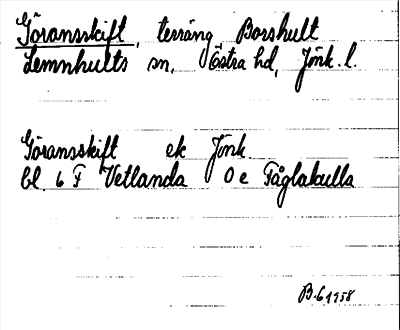 Göransskift, terräng Borshult
Lemnhults sn, Östra hd, Jönk. l.
Göransskift ek Jönk.
bl. 6 F Vetlanda 0 e Fåglakulla
B. G 1958